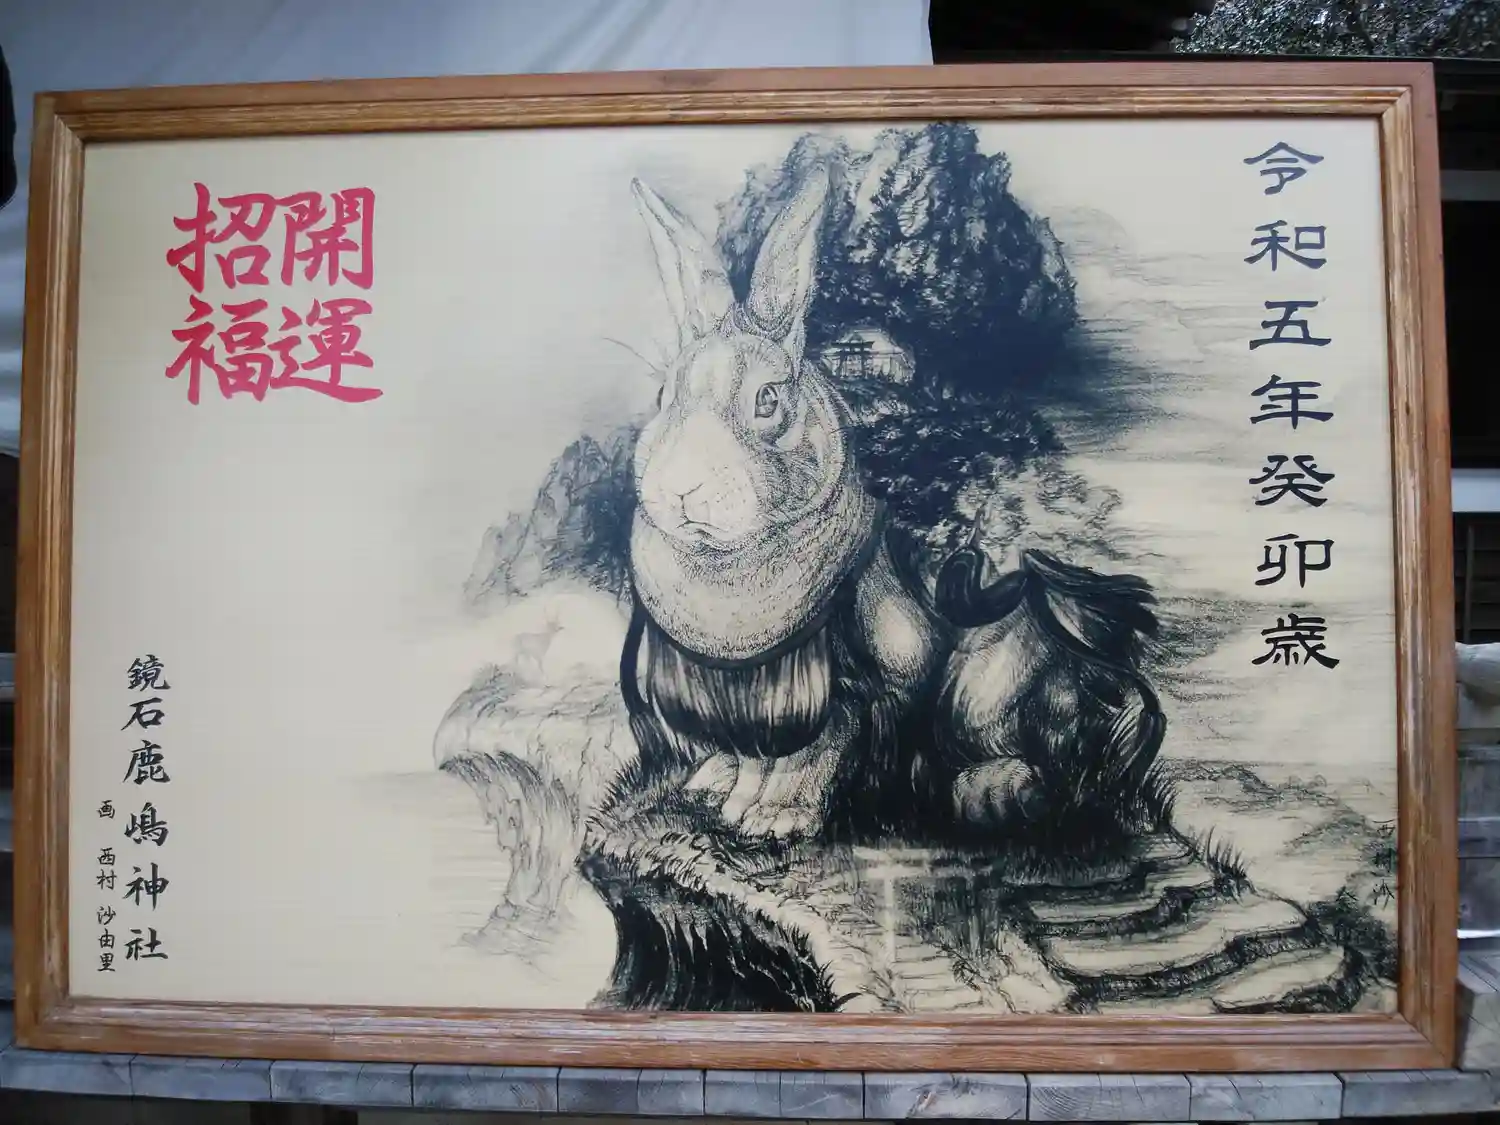 令和五年癸卯歳
開運
招福
鏡石鹿嶋神社
画 西村 沙由里
西村沙